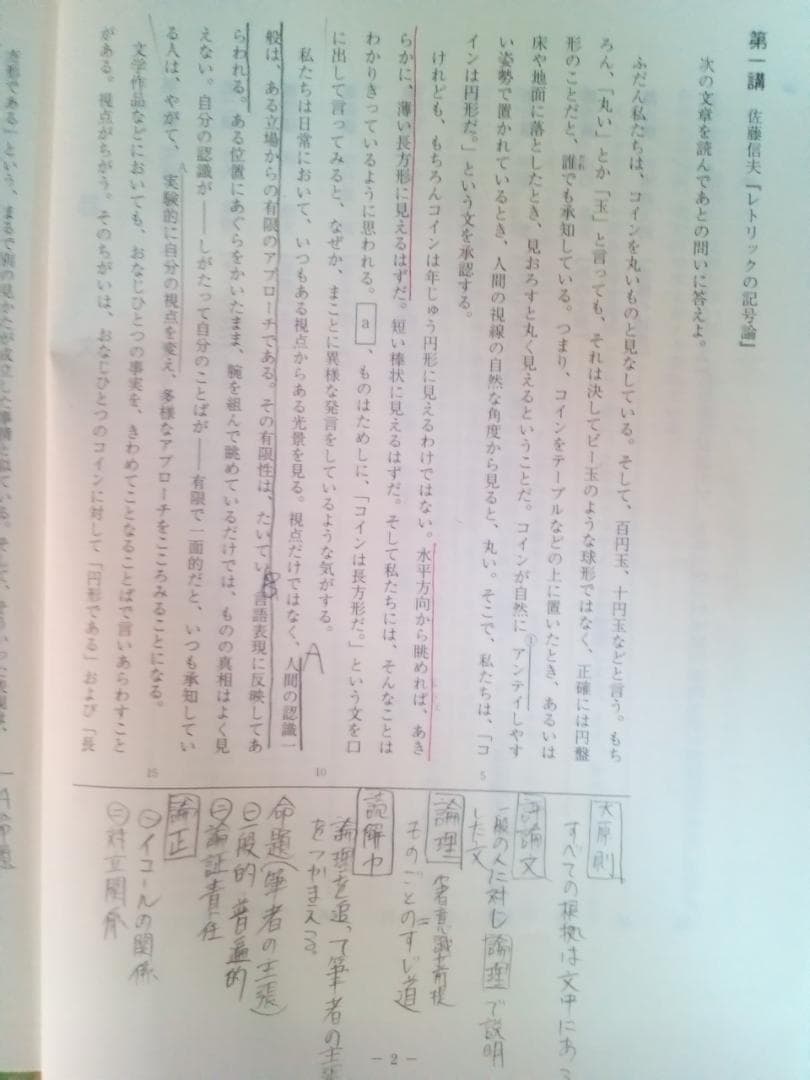 第一講 佐藤信夫『レトリックの記号論』
次の文章を読んであとの問いに答えよ。
ふだん私たちは、コインを丸いものと見なしている。そして、百円玉、十円玉などと言う。もち
ろん、「丸い」とか「玉」と言っても、それは決してビー玉のような球形ではなく、正確には円盤
形のことだと、誰でも承知している。つまり、コインをテーブルなどの上に置いたとき、あるいは
床や地面に落としたとき、見おろすと丸く見えるということだ。コインが自然に①アンテイしやす
い姿勢で置かれているとき、人間の視線の自然な角度から見ると、丸い。そこで、私たちは、「コ
インは円形だ。」という文を承認する。
けれども、もちろんコインは年じゅう円形に見えるわけではない。水平方向から眺めれば、あき
らかに、薄い長方形に見えるはずだ。短い棒状に見えるはずだ。そして私たちには、そんなことは
わかりきっているように思われる。 a 、ものはためしに、「コインは長方形だ。」という文を口
に出して言ってみると、なぜか、まことに異様な発言をしているような気がする。
私たちは日常において、いつもある視点からある光景を見る。視点だけではなく、人間の認識一
般は、ある立場からの有限のアプローチである。その有限性は、たいてい言語表現に反映してあ
らわれる。ある位置にあぐらをかいたまま、腕を組んで眺めているだけでは、ものの真相はよく見
えない。自分の認識が――したがって自分のことばが――有限で一面的だと、いつも承知してい
る人は、やがて、A実験的に自分の視点を変え、多様なアプローチをこころみることになる。
文学作品などにおいても、おなじひとつの事実を、きわめてことなることばで言いあらわすこと
がある。視点がちがう。そのちがいは、おなじひとつのコインに対して「円形である」および「長
方形である」という、まるで別の見かたが成立した事情に似ている。
5
10
15
A
B
大原則
すべての根拠は文中にある
評論文
一般の人に対し論理で説明
した文
論理
そのごとのすじ道
読解力
論理を追って筆者の主張
をつかまえる。
命題(筆者の主張)
㊀一般的 普遍的
㊁論証責任
論正
㊀イコールの関係
㊁対立関係
- 2 -